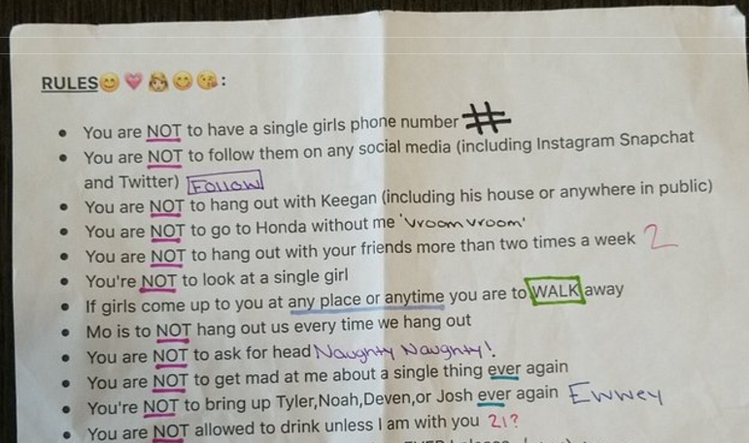 RULES😊💗👸😊😘:
• You are NOT to have a single girls phone number #
• You are NOT to follow them on any social media (including Instagram Snapchat
and Twitter) Follow
• You are NOT to hang out with Keegan (including his house or anywhere in public)
• You are NOT to go to Honda without me 'Vroom vroom'
• You are NOT to hang out with your friends more than two times a week 2
• You're NOT to look at a single girl
• If girls come up to you at any place or anytime you are to WALK away
• Mo is to NOT hang out us every time we hang out
• You are NOT to ask for head Naughty Naughty!
• You are NOT to get mad at me about a single thing ever again
• You're NOT to bring up Tyler,Noah,Deven,or Josh ever again Ewwey
• You are NOT allowed to drink unless I am with you 21?